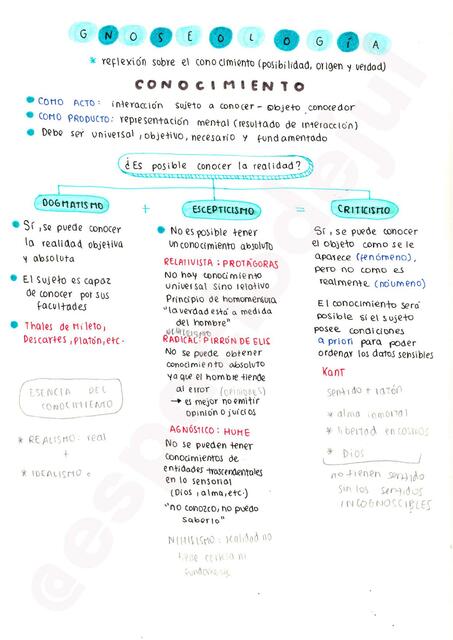 GNOSEOLOGÍA
* reflexión sobre el conocimiento (posibilidad, origen y verdad)
CONOCIMIENTO
COMO ACTO: interacción sujeto a conocer - objeto conocedor
COMO PRODUCTO: representación mental (resultado de interacción)
Debe ser universal, objetivo, necesario y fundamentado
¿Es posible conocer la realidad?
DOGMATISMO
Sí, se puede conocer
la realidad objetiva
y absoluta
El sujeto es capaz
de conocer por sus
facultades
Thales de Mileto,
Descartes, Platón, etc.
ESENCIA DEL
CONOCIMIENTO
* REALISMO: real
+
* IDEALISMO
+
ESCEPTICISMO
No es posible tener
un conocimiento absoluto
RELATIVISTA: PROTÁGORAS
No hay conocimiento
universal sino relativo
Principio de homomensura
"la verdad está a medida
del hombre"
RADICAL: PIRRÓN DE ELIS
No se puede obtener
conocimiento absoluto
ya que el hombre tiende
al error (opiniones)
→ es mejor no emitir
opinión o juicios
AGNÓSTICO: HUME
No se pueden tener
conocimientos de
entidades trascendentales
en lo sensorial
(Dios, alma, etc.)
"no conozco, no puedo
saberlo"
NIHILISMO: realidad no
tiene
=
CRITICISMO
Sí, se puede conocer
el objeto como se le
aparece (fenómeno),
pero no como es
realmente (noúmeno)
El conocimiento será
posible si el sujeto
posee condiciones
a priori para poder
ordenar los datos sensibles
Kant
sentido + razón
* alma inmortal
* libertad en cosmos
* Dios
no tienen sentido
sin los sentidos
INCOGNOSCIBLES